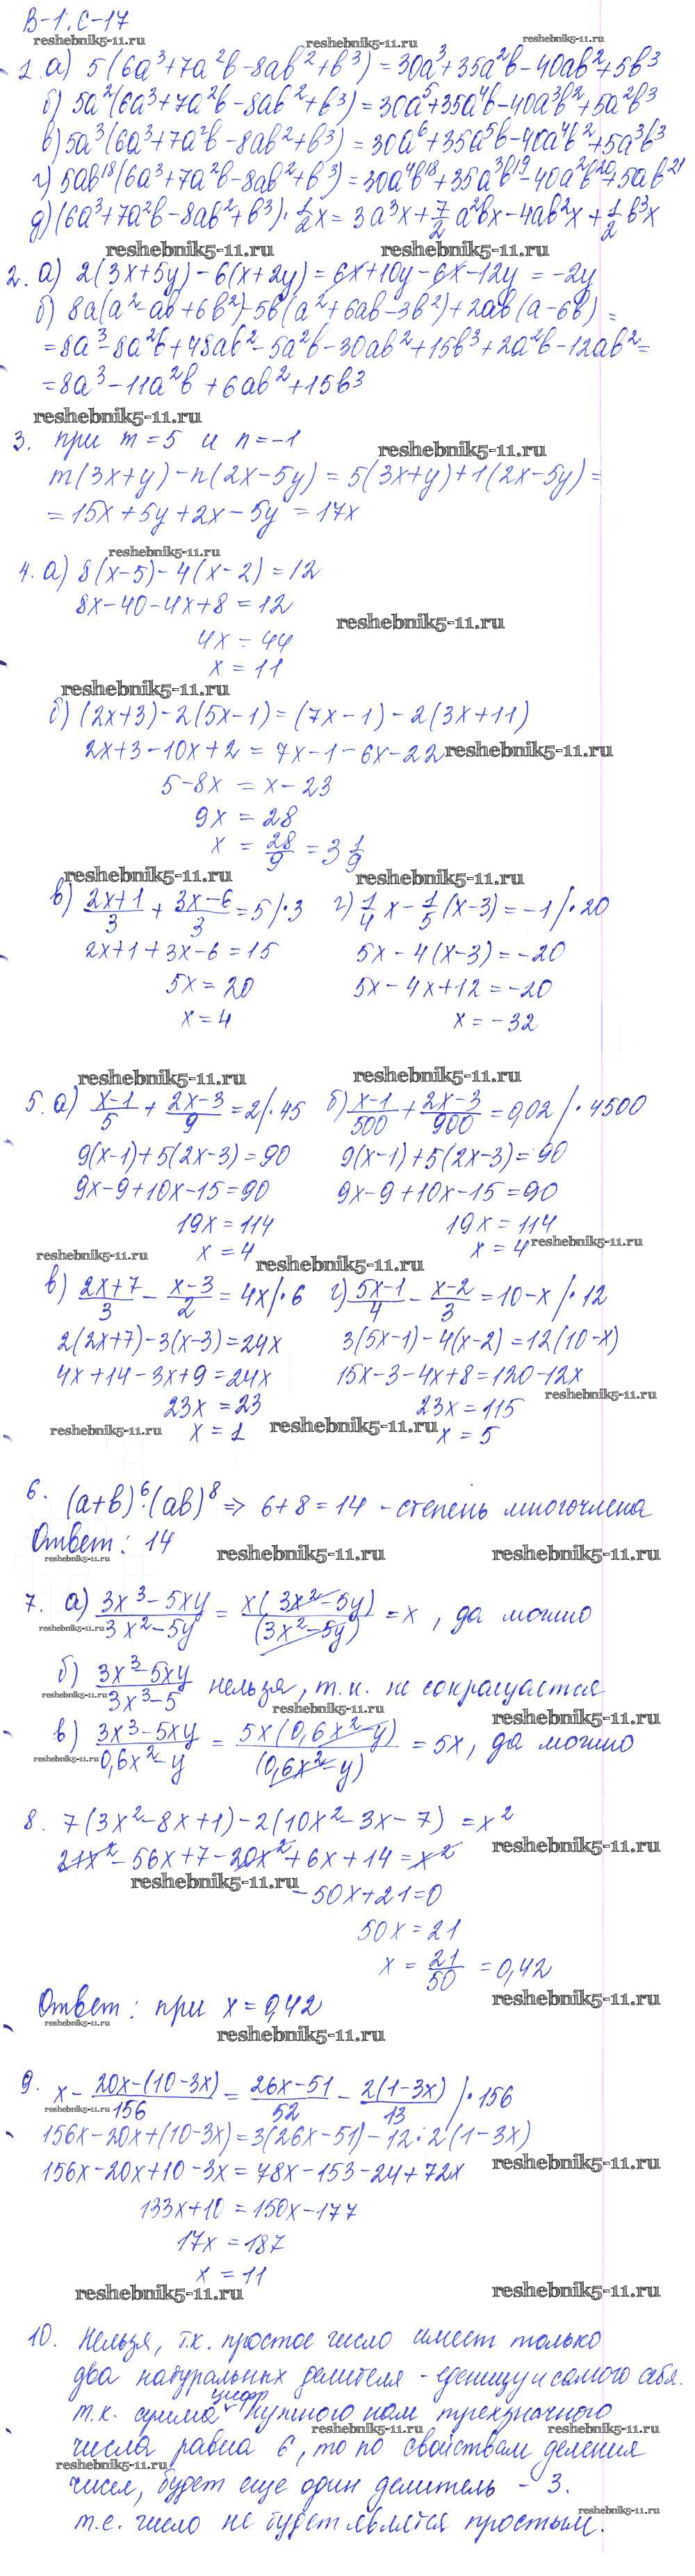 В-1. С-17
reshebnik5-11.ru reshebnik5-11.ru reshebnik5-11.ru
1. а) 5(6a³+7a²b-8ab²+b³)=30a³+35a²b-40ab²+5b³
б) 5a²(6a³+7a²b-8ab²+b³)=30a⁵+35a⁴b-40a³b²+5a²b³
в) 5a³(6a³+7a²b-8ab²+b³)=30a⁶+35a⁵b-40a⁴b²+5a³b³
г) 5ab¹⁸(6a³+7a²b-8ab²+b³)=30a⁴b¹⁸+35a³b¹⁹-40a²b²⁰+5ab²¹
д) (6a³+7a²b-8ab²+b³)·1/2x=3a³x+7/2a²bx-4ab²x+1/2b³x
reshebnik5-11.ru reshebnik5-11.ru
2. а) 2(3x+5y)-6(x+2y)=6x+10y-6x-12y=-2y
б) 8a(a²-ab+6b²)-5b(a²+6ab-3b²)+2ab(a-6b)=
=8a³-8a²b+48ab²-5a²b-30ab²+15b³+2a²b-12ab²=
=8a³-11a²b+6ab²+15b³
reshebnik5-11.ru
3. при m=5 и n=-1
reshebnik5-11.ru
m(3x+y)-n(2x-5y)=5(3x+y)+1(2x-5y)=
=15x+5y+2x-5y=17x
reshebnik5-11.ru
4. а) 8(x-5)-4(x-2)=12
8x-40-4x+8=12
reshebnik5-11.ru
4x=44
x=11
reshebnik5-11.ru
б) (2x+3)-2(5x-1)=(7x-1)-2(3x+11)
2x+3-10x+2=7x-1-6x-22 reshebnik5-11.ru
5-8x=x-23
9x=28
x=28/9=3 1/9
reshebnik5-11.ru reshebnik5-11.ru
в) (2x+1)/3+(3x-6)/3=5/·3 г) 1/4x-1/5(x-3)=-1/·20
2x+1+3x-6=15 5x-4(x-3)=-20
5x=20 5x-4x+12=-20
x=4 x=-32
reshebnik5-11.ru reshebnik5-11.ru
5. а) (x-1)/5+(2x-3)/9=2/·45 б) (x-1)/500+(2x-3)/900=0,02/·4500
9(x-1)+5(2x-3)=90 9(x-1)+5(2x-3)=90
9x-9+10x-15=90 9x-9+10x-15=90
19x=114 19x=114
reshebnik5-11.ru x=4 x=4 reshebnik5-11.ru
reshebnik5-11.ru
в) (2x+7)/3-(x-3)/2=4x/·6 г) (5x-1)/4-(x-2)/3=10-x/·12
2(2x+7)-3(x-3)=24x 3(5x-1)-4(x-2)=12(10-x)
4x+14-3x+9=24x 15x-3-4x+8=120-12x
reshebnik5-11.ru
23x=23 23x=115
reshebnik5-11.ru x=1 reshebnik5-11.ru x=5
6. (a+b)⁶·(ab)⁸ => 6+8=14 - степень многочлена
Ответ: 14
reshebnik5-11.ru reshebnik5-11.ru reshebnik5-11.ru
7. а) (3x³-5xy)/(3x²-5y)=x(3x²-5y)/(3x²-5y)=x, да можно
reshebnik5-11.ru
б) (3x³-5xy)/(3x³-5) нельзя, т.к. не сокращается
reshebnik5-11.ru reshebnik5-11.ru reshebnik5-11.ru
в) (3x³-5xy)/(0,6x²-y)=5x(0,6x²-y)/(0,6x²-y)=5x, да можно
reshebnik5-11.ru
8. 7(3x²-8x+1)-2(10x²-3x-7)=x²
reshebnik5-11.ru
21x²-56x+7-20x²+6x+14=x²
reshebnik5-11.ru
-50x+21=0
50x=21
x=21/50=0,42
Ответ: при x=0,42
reshebnik5-11.ru reshebnik5-11.ru reshebnik5-11.ru
9. x-(20x-(10-3x))/156=(26x-51)/52-2(1-3x)/13/·156
reshebnik5-11.ru
156x-20x+(10-3x)=3(26x-51)-12·2(1-3x)
reshebnik5-11.ru
156x-20x+10-3x=78x-153-24+72x
133x+10=150x-177
17x=187
x=11
reshebnik5-11.ru reshebnik5-11.ru
10. Нельзя, т.к. простое число имеет только
два натуральных делителя - еденицу и самого себя.
т.к. сумма цифр нужного нам трехзначного
reshebnik5-11.ru reshebnik5-11.ru
числа равна 6, то по свойствам деления
reshebnik5-11.ru
чисел, будет еще один делитель - 3.
reshebnik5-11.ru
т.е. число не будет является простым.